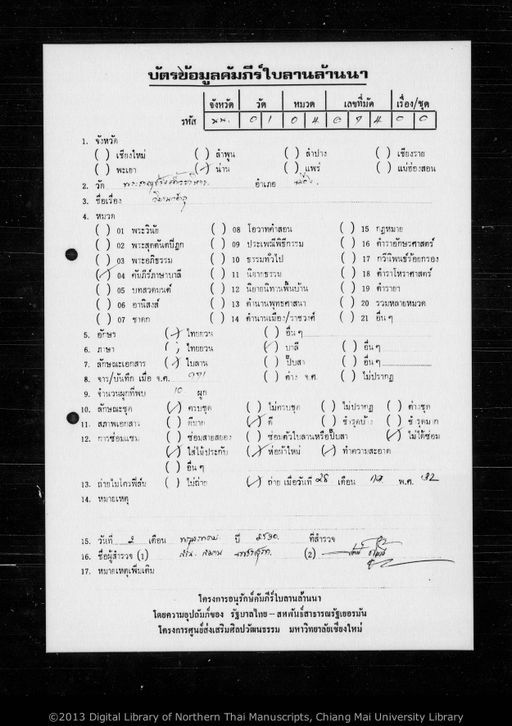 บัตรข้อมูลคัมภีร์ใบลานล้านนา
จังหวัด วัด หมวด เลขที่มัด เรื่อง/ชุด
รหัส นน. 0 1 0 4 0 0
1. จังหวัด
( ) เชียงใหม่ ( ) ลำพูน ( ) ลำปาง ( ) เชียงราย
( ) พะเยา (✓) น่าน ( ) แพร่ ( ) แม่ฮ่องสอน
2. วัด อำเภอ
3. ชื่อเรื่อง
4. หมวด
( ) 01 พระวินัย ( ) 08 โอวาทคำสอน ( ) 15 กฎหมาย
( ) 02 พระสุตตันตปิฎก ( ) 09 ประเพณีพิธีกรรม ( ) 16 ตำราอักษรศาสตร์
( ) 03 พระอภิธรรม ( ) 10 ธรรมทั่วไป ( ) 17 กวีนิพนธ์ร้อยกรอง
(✓) 04 คัมภีร์ภาษาบาลี ( ) 11 นิยายธรรม ( ) 18 ตำราโหราศาสตร์
( ) 05 บทสวดมนต์ ( ) 12 นิยายนิทานพื้นบ้าน ( ) 19 ตำรายา
( ) 06 อานิสงส์ ( ) 13 ตำนานพุทธศาสนา ( ) 20 รวมหลายหมวด
( ) 07 ชาดก ( ) 14 ตำนานเมือง/ราชวงศ์ ( ) 21 อื่นๆ
5. อักษร (✓) ไทยยวน ( ) อื่นๆ
6. ภาษา ( ) ไทยยวน (✓) บาลี ( ) อื่นๆ
7. ลักษณะเอกสาร (✓) ใบลาน ( ) ปั๊บสา ( ) อื่นๆ
8. จาร/บันทึก เมื่อ จ.ศ. ( ) ค่าง จ.ศ. ( ) ไม่ปรากฏ
9. จำนวนผูกที่พบ 10 ผูก
10. ลักษณะชุด (✓) ครบชุด ( ) ไม่ครบชุด ( ) ไม่ปรากฏ ( ) ค่างชุด
11. สภาพเอกสาร ( ) ดีมาก (✓) ดี ( ) ชำรุดบ้าง ( ) ชำรุดมาก
12. การซ่อมแซม ( ) ซ่อมสายสยอง ( ) ซ่อมตัวใบลานหรือปั๊บสา (✓) ไม่ได้ซ่อม
(✓) ใส่ไม้ประกับ (✓) ห่อผ้าใหม่ (✓) ทำความสะอาด
( ) อื่นๆ
13. ถ่ายไมโครฟิล์ม ( ) ไม่ถ่าย (✓) ถ่าย เมื่อวันที่ 28 เดือน พ.ศ. 32
14. หมายเหตุ
15. วันที่ 2 เดือน ปี 2530 ที่สำรวจ
16. ชื่อผู้สำรวจ (1) (2)
17. หมายเหตุเพิ่มเติม
โครงการอนุรักษ์คัมภีร์ใบลานล้านนา
โดยความอุปถัมภ์ของ รัฐบาลไทย – สหพันธ์สาธารณรัฐเยอรมัน
โครงการศูนย์ส่งเสริมศิลปวัฒนธรรม มหาวิทยาลัยเชียงใหม่
©2013 Digital Library of Northern Thai Manuscripts, Chiang Mai University Library